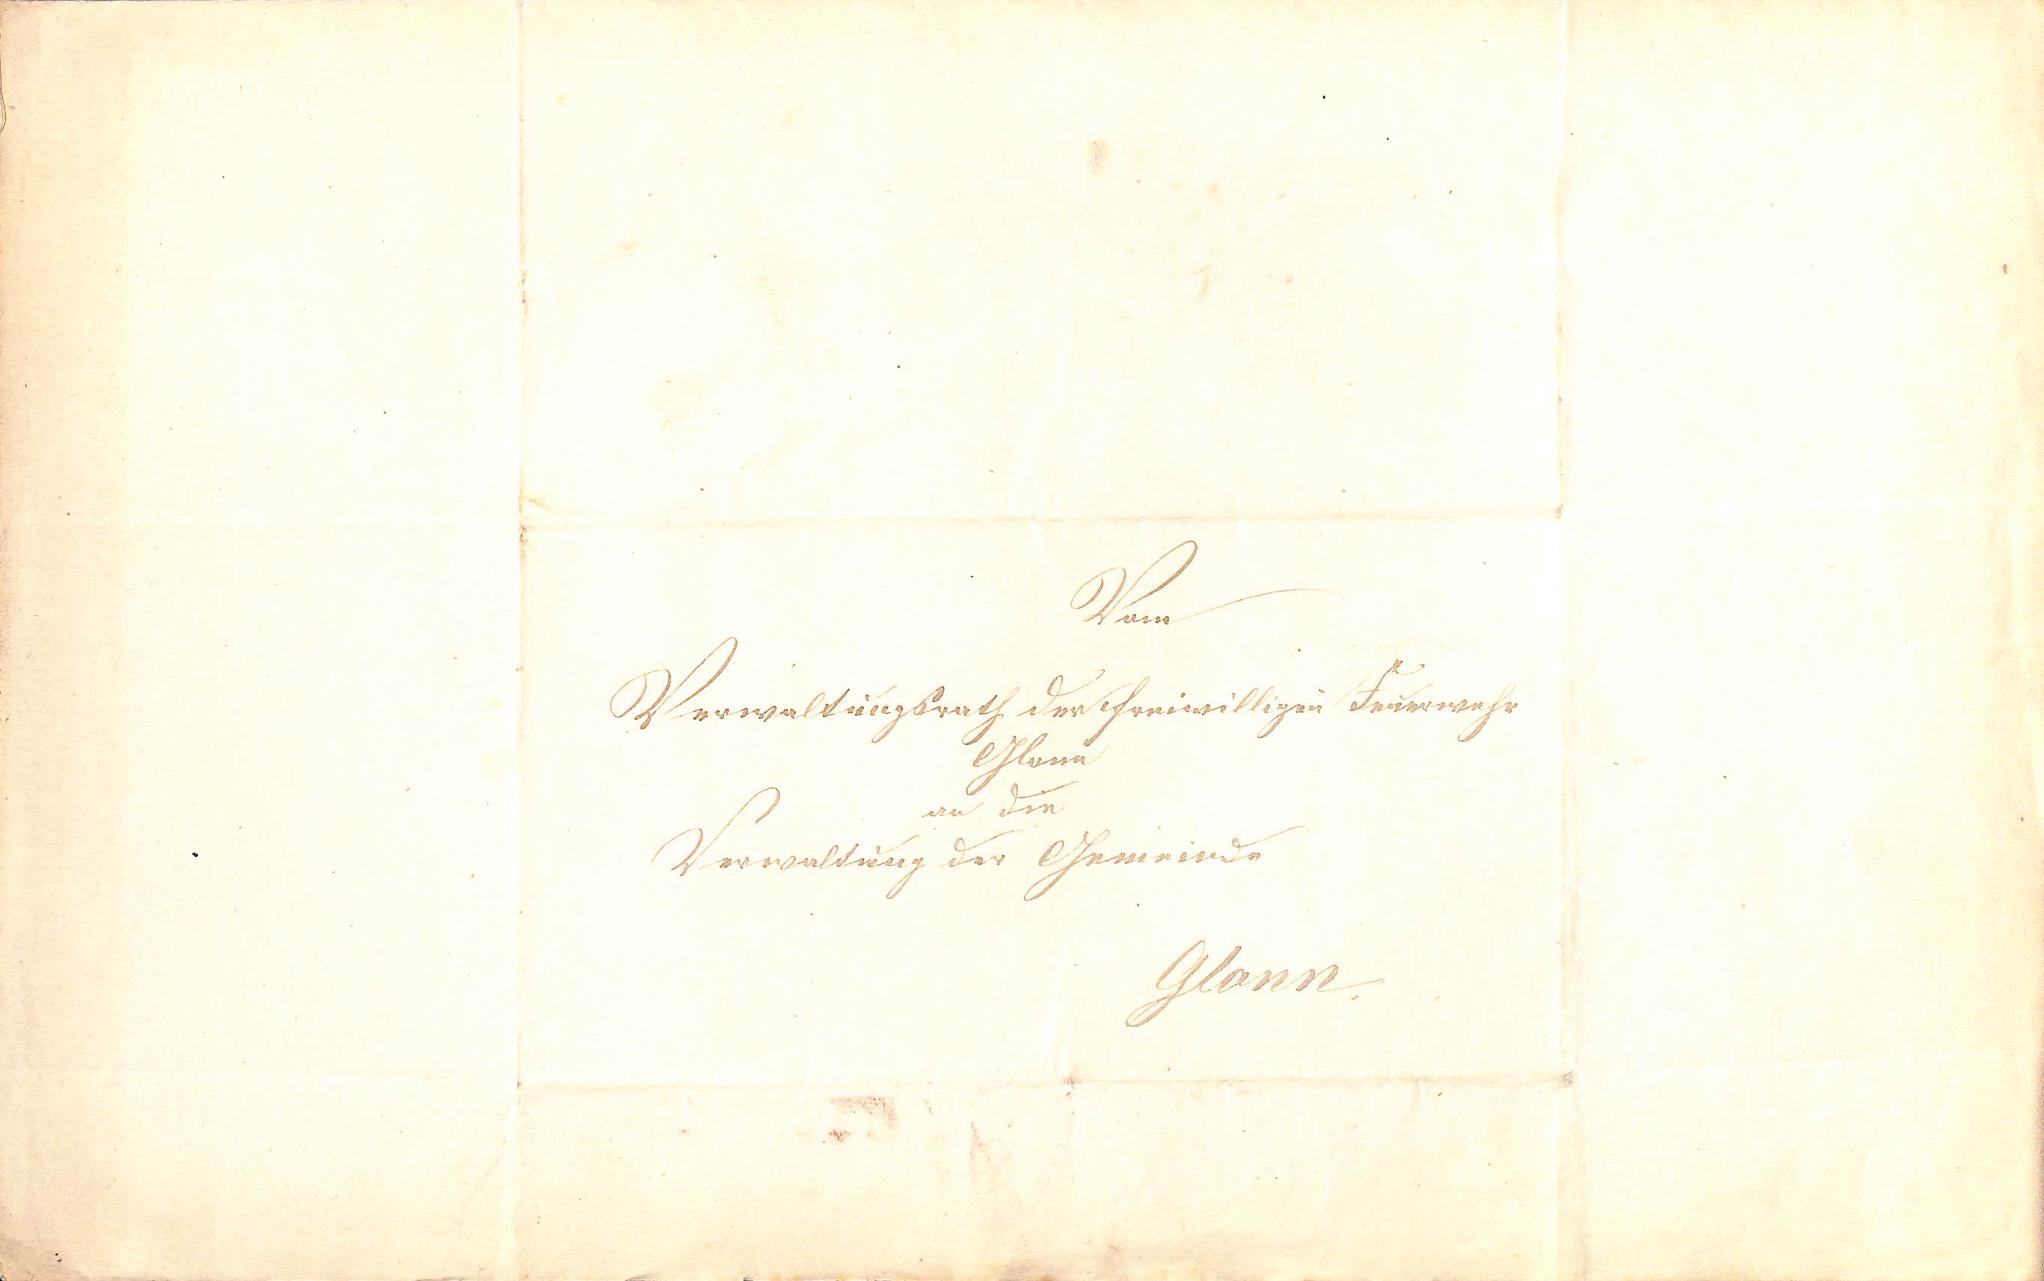 Vom
Verwaltungsrath der freiwilligen Feuerwehr
Glonn
an die
Verwaltung der Gemeinde
Glonn.